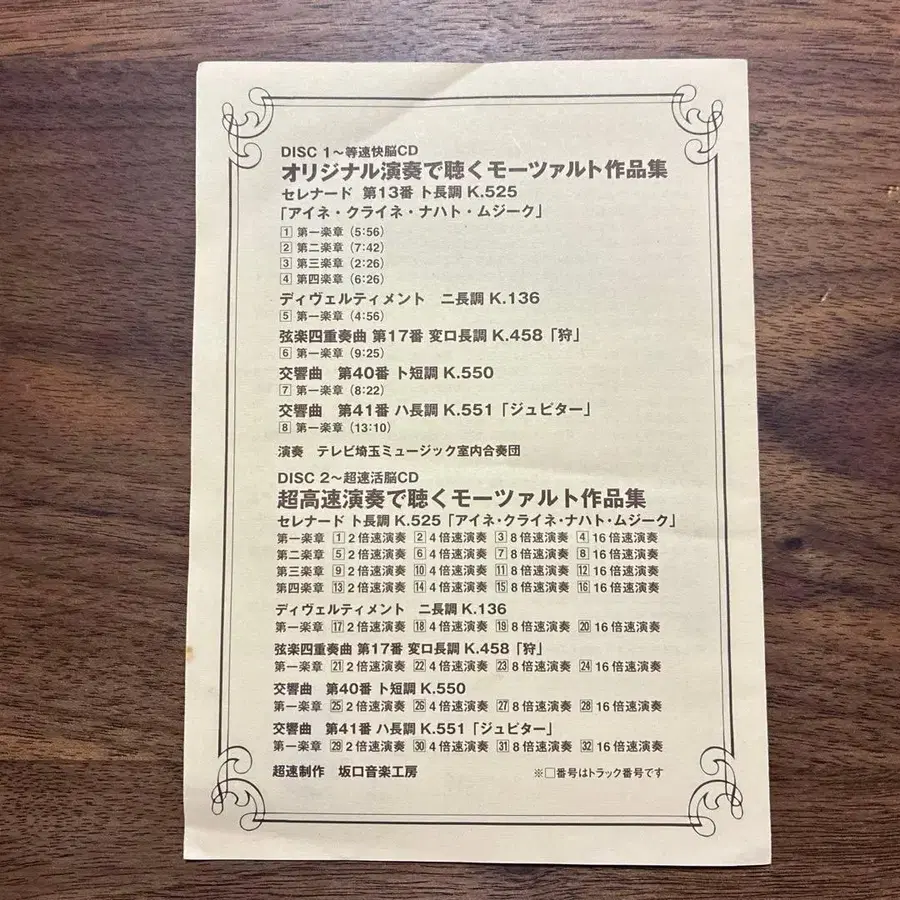 DISC 1～等速快脳CD
オリジナル演奏で聴くモーツァルト作品集
セレナード 第13番 ト長調 K.525
「アイネ・クライネ・ナハト・ムジーク」
1 第一楽章（5:56）
2 第二楽章（7:42）
3 第三楽章（2:26）
4 第四楽章（6:26）
ディヴェルティメント ニ長調 K.136
5 第一楽章（4:56）
弦楽四重奏曲 第17番 変ロ長調 K.458「狩」
6 第一楽章（9:25）
交響曲 第40番 ト短調 K.550
7 第一楽章（8:22）
交響曲 第41番 ハ長調 K.551「ジュピター」
8 第一楽章（13:10）
演奏 テレビ埼玉ミュージック室内合奏団
DISC 2～超速活脳CD
超高速演奏で聴くモーツァルト作品集
セレナード ト長調 K.525「アイネ・クライネ・ナハト・ムジーク」
第一楽章 1 2倍速演奏 2 4倍速演奏 3 8倍速演奏 4 16倍速演奏
第二楽章 5 2倍速演奏 6 4倍速演奏 7 8倍速演奏 8 16倍速演奏
第三楽章 9 2倍速演奏 10 4倍速演奏 11 8倍速演奏 12 16倍速演奏
第四楽章 13 2倍速演奏 14 4倍速演奏 15 8倍速演奏 16 16倍速演奏
ディヴェルティメント ニ長調 K.136
第一楽章 17 2倍速演奏 18 4倍速演奏 19 8倍速演奏 20 16倍速演奏
弦楽四重奏曲 第17番 変ロ長調 K.458「狩」
第一楽章 21 2倍速演奏 22 4倍速演奏 23 8倍速演奏 24 16倍速演奏
交響曲 第40番 ト短調 K.550
第一楽章 25 2倍速演奏 26 4倍速演奏 27 8倍速演奏 28 16倍速演奏
交響曲 第41番 ハ長調 K.551「ジュピター」
第一楽章 29 2倍速演奏 30 4倍速演奏 31 8倍速演奏 32 16倍速演奏
超速制作 坂口音楽工房 ※□番号はトラック番号です